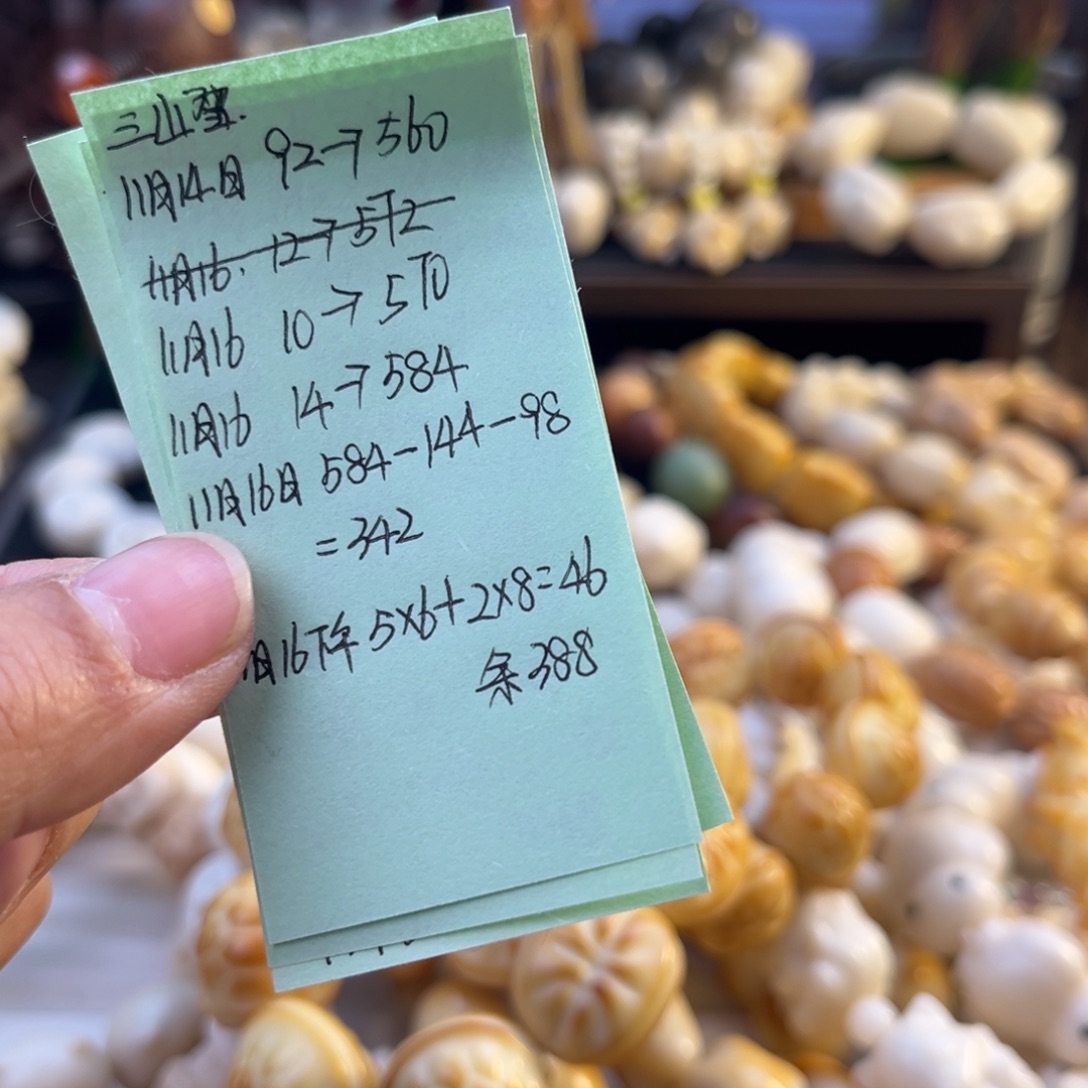 三山
11月14日 92→560
11月16. 12→572
11月16 10→570
11月16 14→584
11月16日 584-144-98
=342
月16下午 5×6+2×8=46
余388